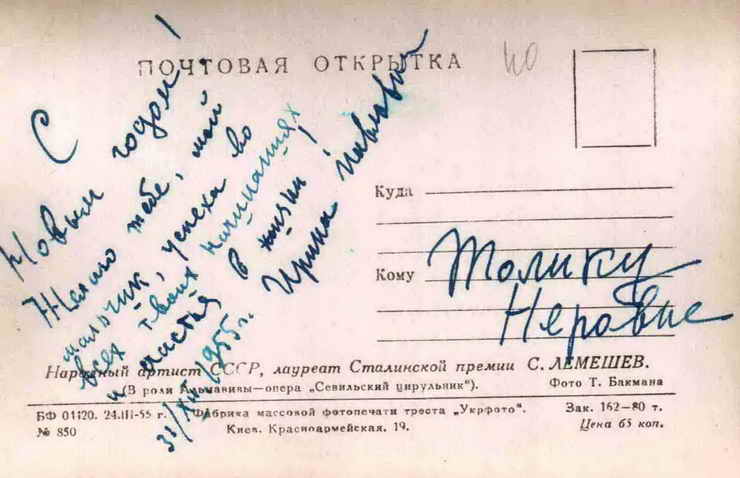 ПОЧТОВАЯ ОТКРЫТКА
40
С
Новым годом!
Желаю тебе, мой
мальчик, успеха во
всех твоих начинаниях
и счастья в жизни!
Ирина
31/XII 1955 г.
Куда
Кому
Толику
Народный артист СССР, лауреат Сталинской премии С. ЛЕМЕШЕВ.
(В роли Альмавивы—опера „Севильский цирульник“).
Фото Т. Бакмана
БФ 01120. 24.III-55 г.
Фабрика массовой фотопечати треста „Укрфото“.
Зак. 162—80 т.
№ 850
Киев, Красноармейская, 19.
Цена 65 коп.